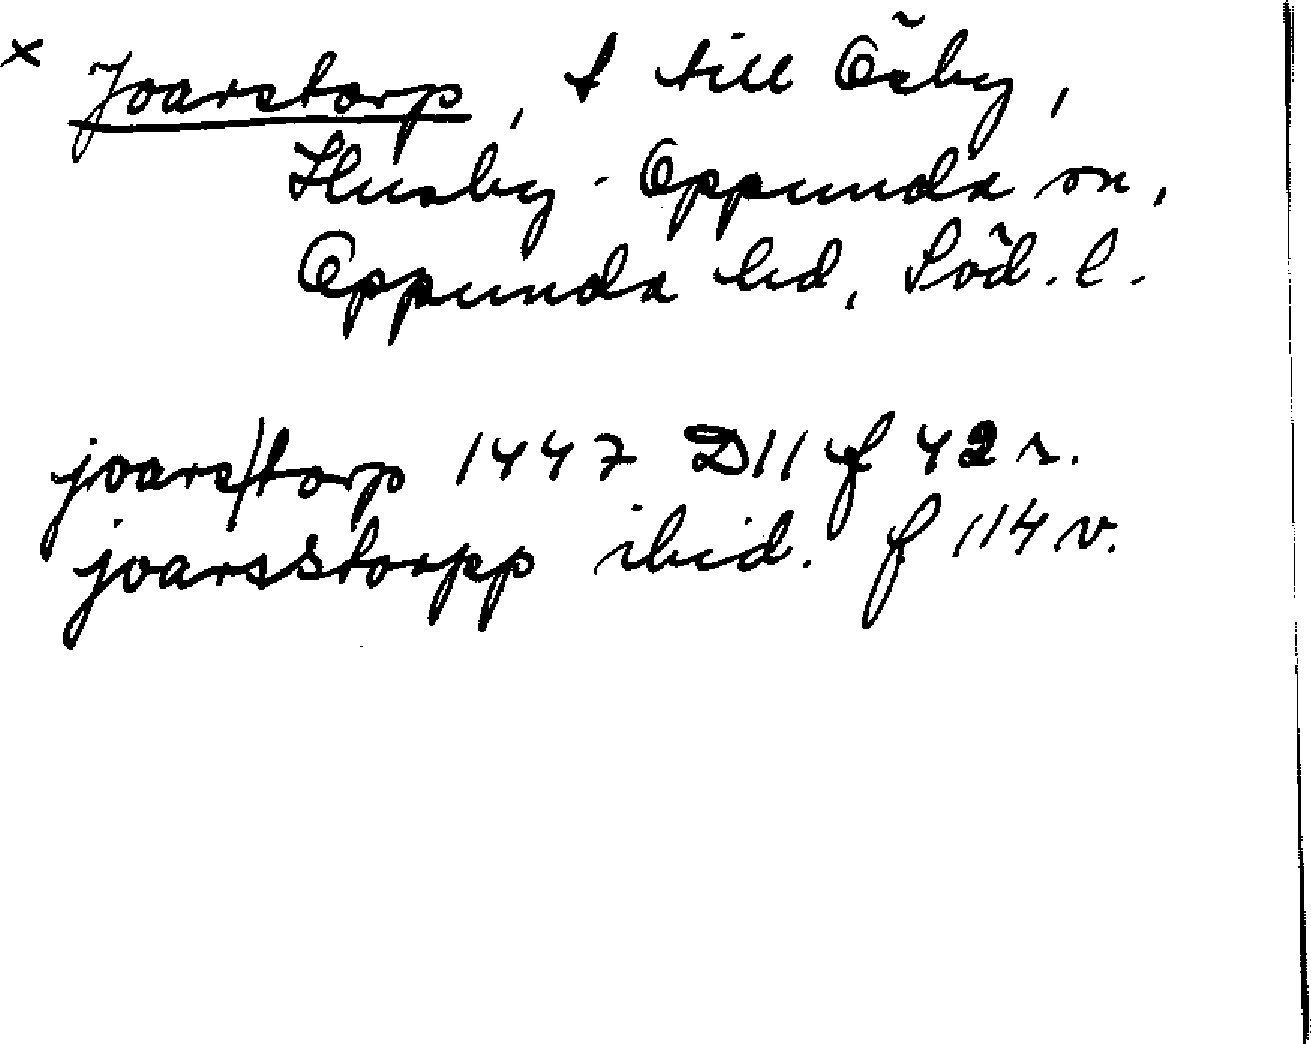 × Joarstorp, t till Ösby,
Husby-Oppunda sn,
Oppunda hd, Söd. l.
joars/torp 1447 D11 f 42 r.
joarsstorpp ibid. f 114 v.